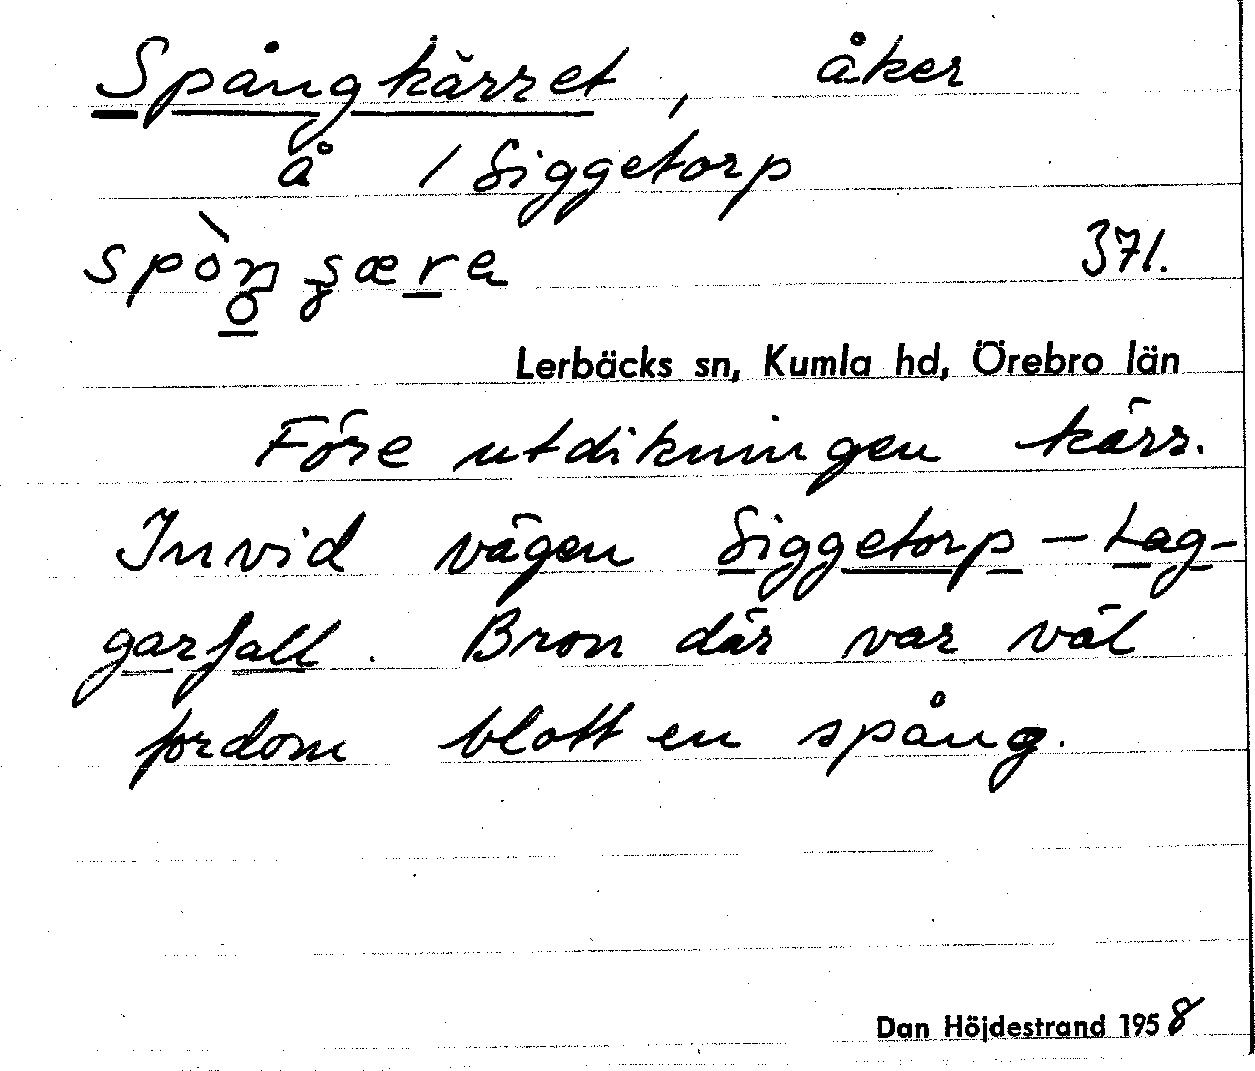 Spångkärret, åker
å 1 Siggetorp
371.
Lerbäcks sn, Kumla hd, Örebro län
Före utdikningen kärr.
Invid vägen Siggetorp – Lag-
garfall. Bron där var väl
fordom blott en spång.
Dan Höjdestrand 1958